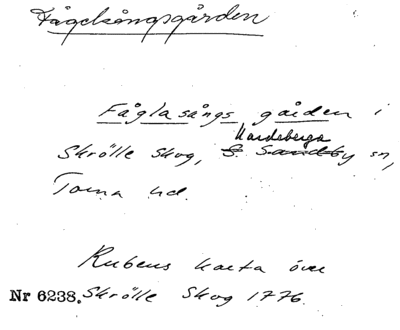 Fågelsångsgården
Fåglasångs gården i
Hardeberga
Skrölle Skog, S. Sandby sn,
Torna hd.
Rubens karta över
Nr 6238. Skrölle Skog 1776.